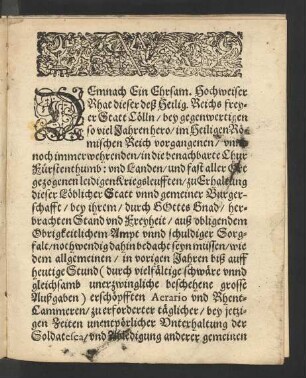 DEmnach Ein Ehrsam. Hochweiser
Rhat dieser deß Heilig. Reichs frey-
er Statt Cölln / bey gegenwertigen
so viel Jahren hero / im Heiligen Rö-
mischen Reich vorgangenen / vnnd
noch immerwehrenden / in die benachbarte Chur
Fürstenthumb: vnd Landen / vnd fast aller Ort
gezogenen leidigen Kriegsleufften / zu Erhaltung
dieser Löblicher Statt vnnd gemeiner Burger-
schafft / bey ihrem / durch GOttes Gnad / her-
brachten Stand vnd Freyheit / auß obligendem
Obrigkeitlichem Ampt vnnd schuldiger Sorg-
falt / nothwendig dahin bedacht seyn müssen / wie
dem allgemeinen / in vorigen Jahren biß auff
heutige Stund (durch vielfältige schwäre vnnd
gleichsamb vnerzwingliche beschehene grosse
Außgaben) erschöpfften Aerario vnd Rhent-
Cammeren / zu erforderter täglicher / bey jetzi-
gen Zeiten vnentpörlicher Vnterhaltung der
Soldatesca / vnd Abledigung anderer gemeinen